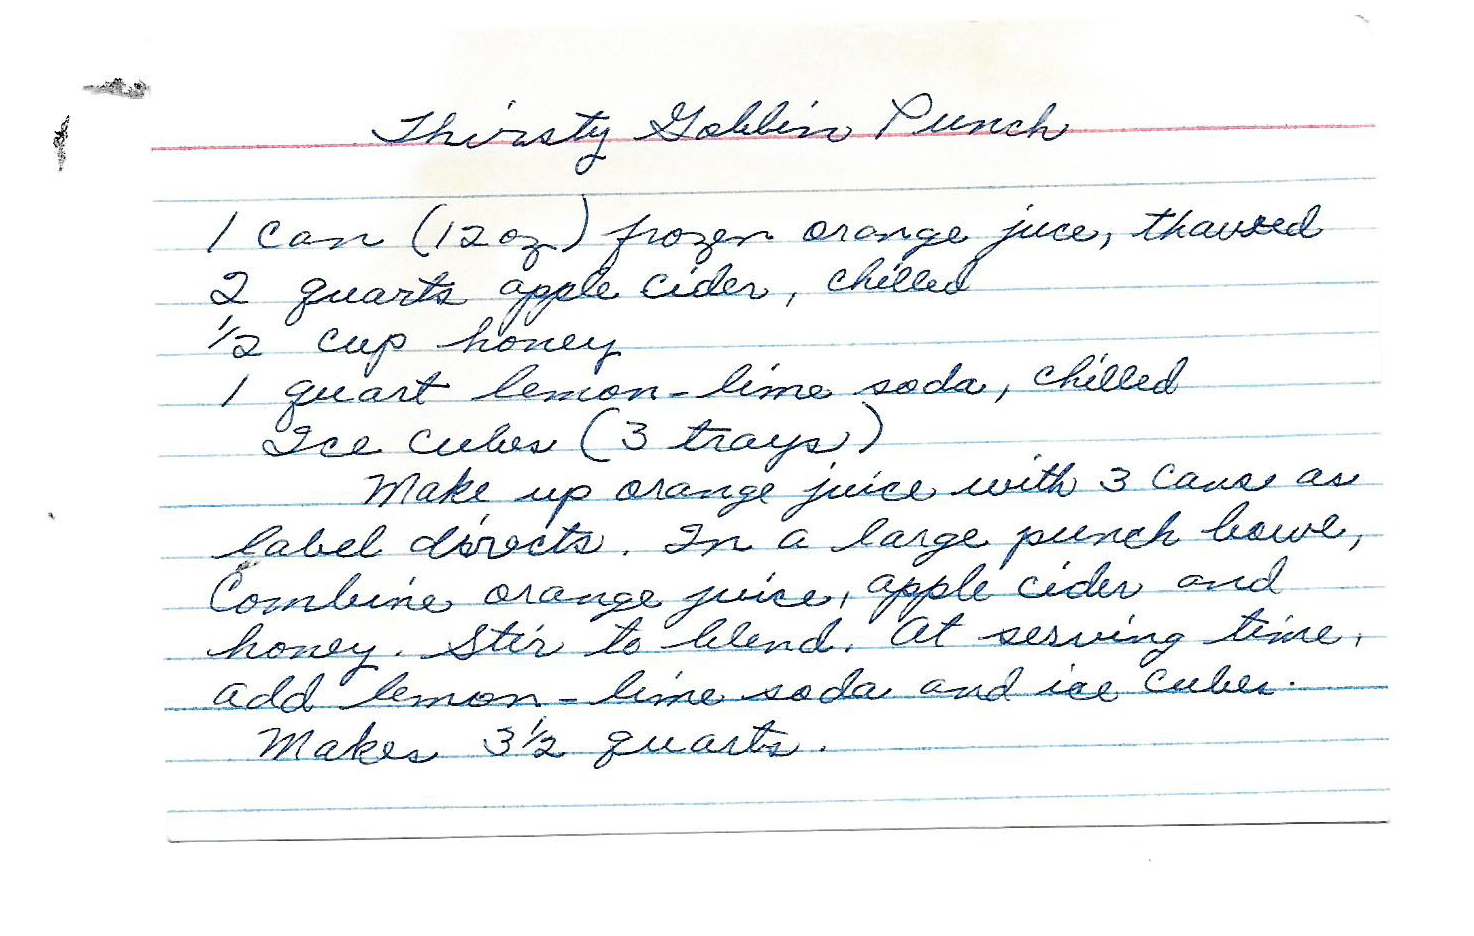 Thirsty Goblin Punch
1 can (12 oz) frozen orange juce, thawed
2 quarts apple cider, chilled
1/2 cup honey
1 quart lemon-lime soda, chilled
Ice cubes (3 trays)
Make up orange juice with 3 cans as
label directs. In a large punch bowl,
Combine orange juice, apple cider and
honey. Stir to blend. At serving time,
add lemon-lime soda and ice cubes.
Makes 3 1/2 quarts.